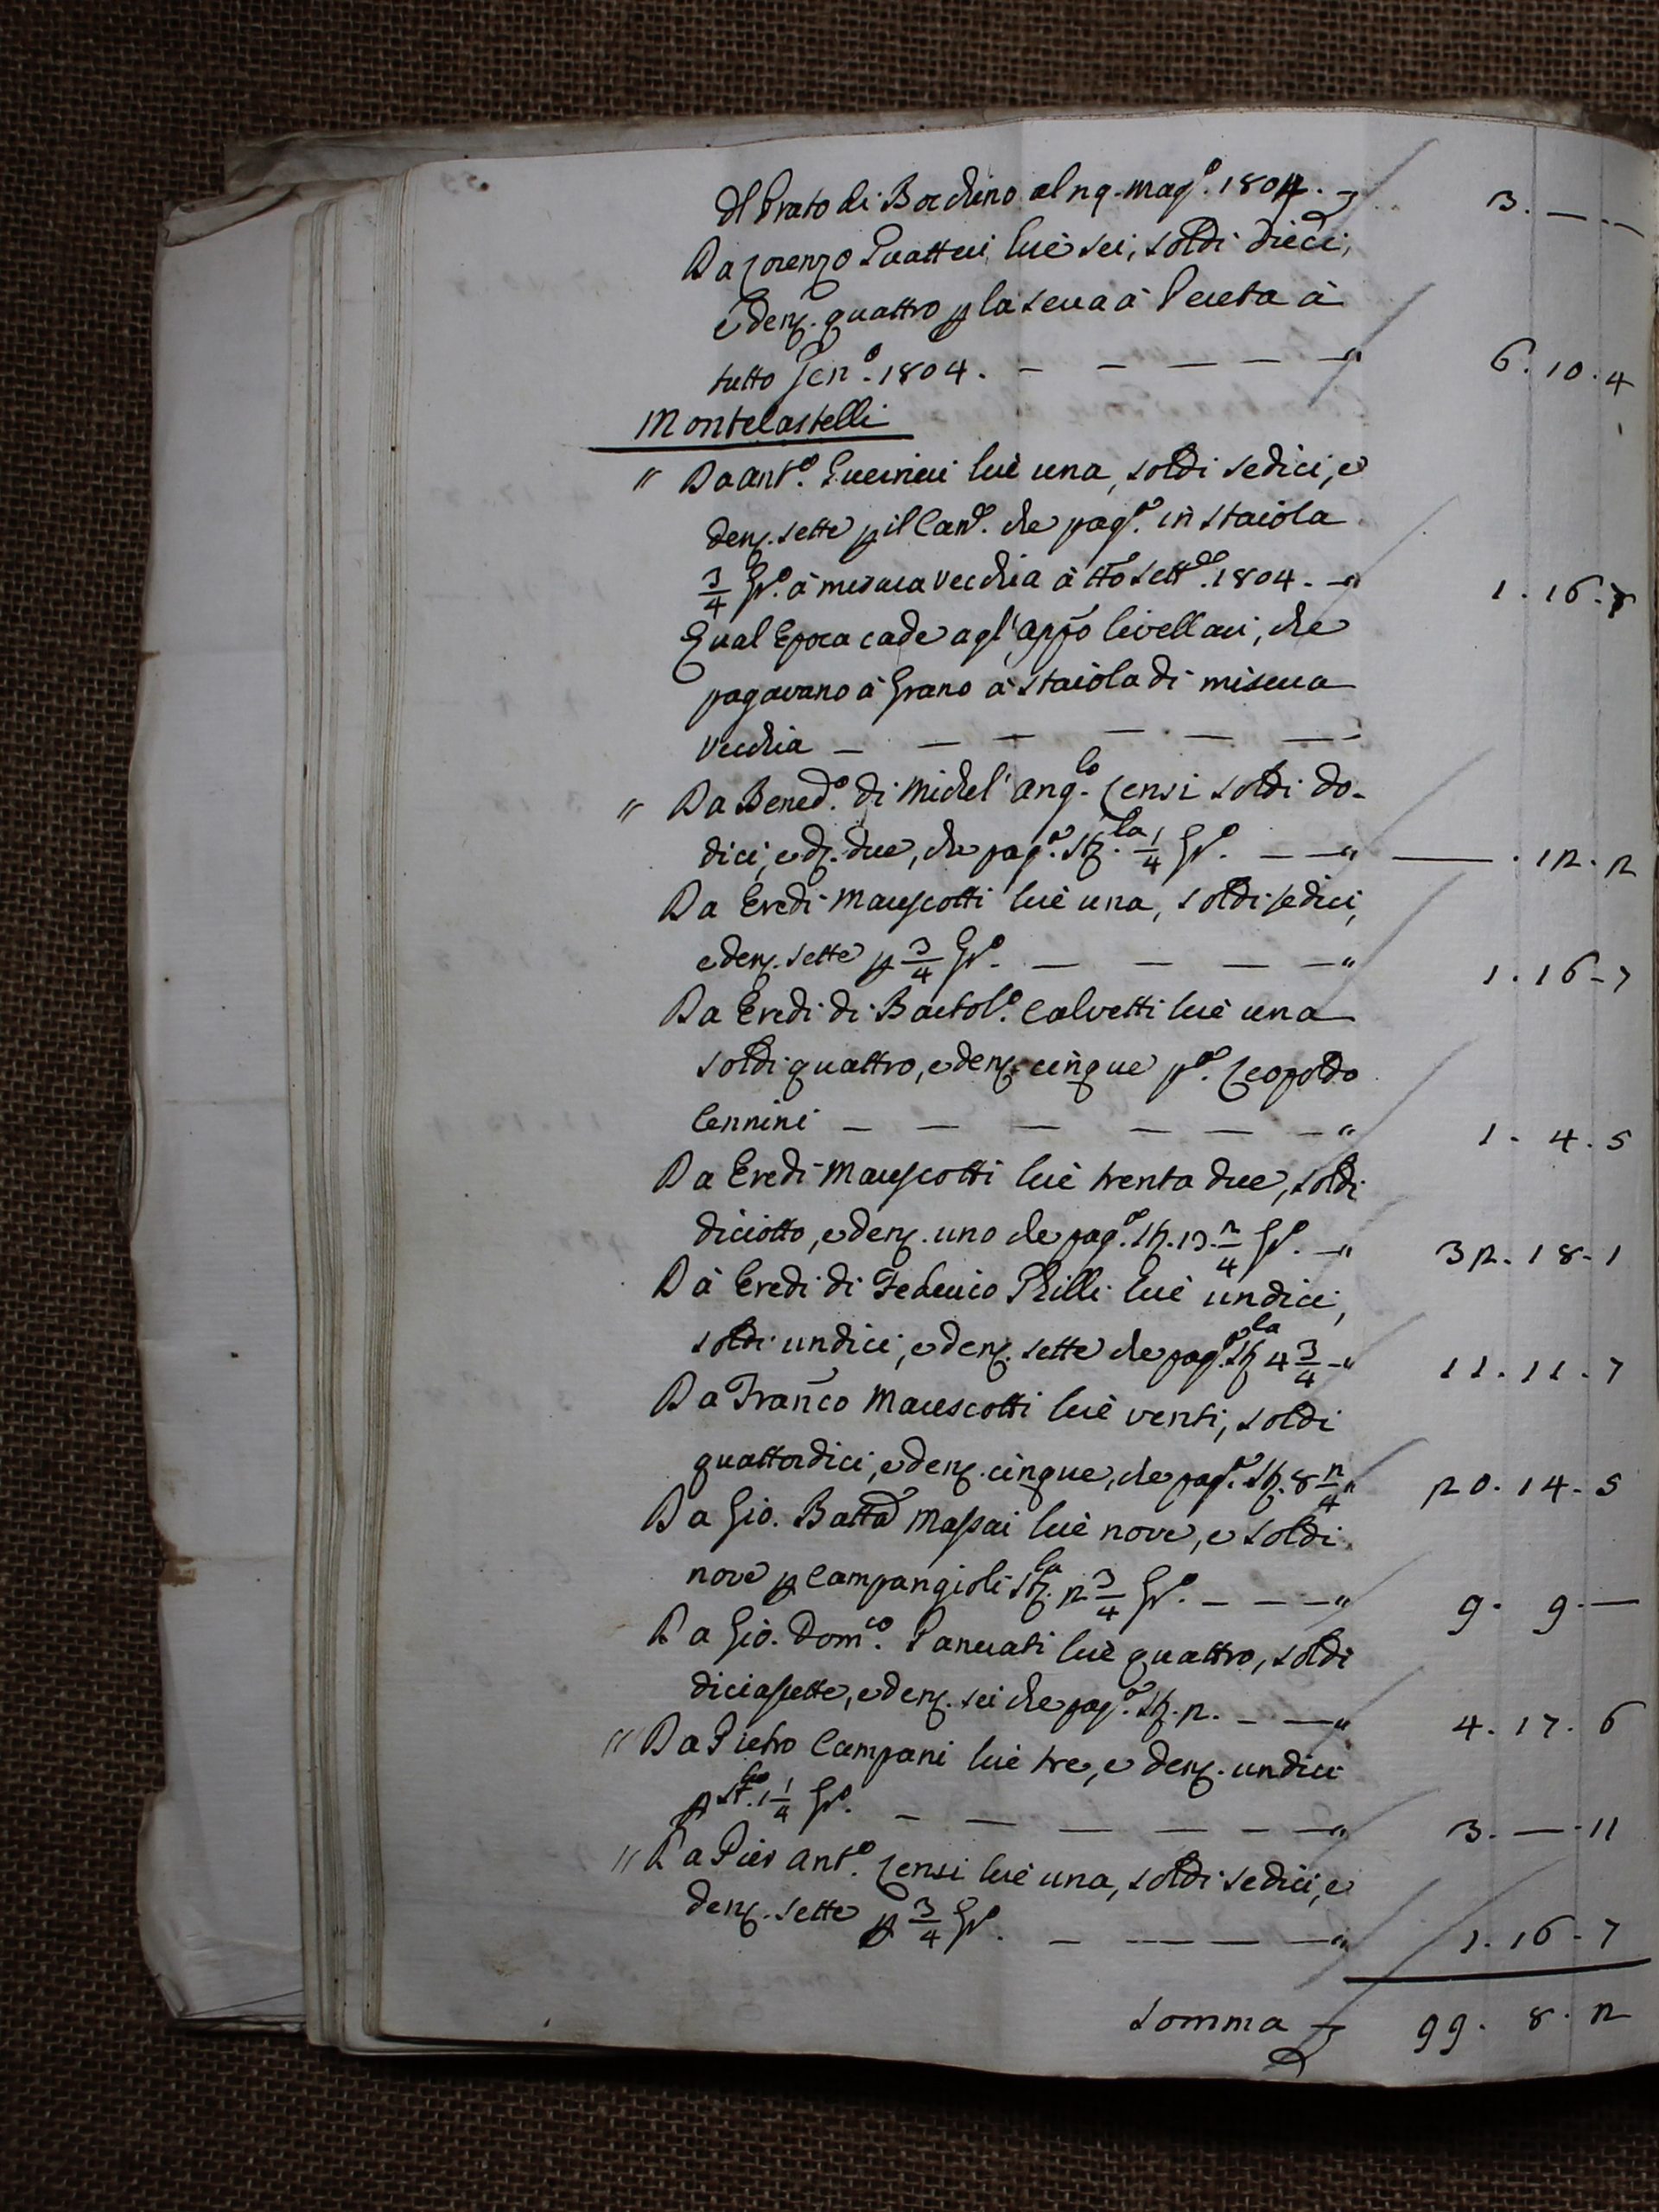 Il Prato di Bocchino al 29. Mag.º 1804. — 3. — . —
Da Lorenzo Quattrii lire sei, soldi dieci,
e den. quattro p la terra à Peceta à
tutto Gen.º 1804. — — — — — " 6. 10. 4
Montecastelli
" Da Ant.º Guerrieri lire una, soldi sedici, e
den. sette p il Can.e che pag.a in staiola
3/4 Gr.º à misura vecchia à tto Sett.e 1804. — " 1. 16. 7
Qual Epoca cade agl'appo livellari, che
pagavano à Grano à staiola di misura
vecchia — — — — — —
" Da Bened.º di Michel'Ang.lo Censi soldi do-
dici, e d. due, che pag.a St.la 1/4 Gr.º — — " — . 12. 2
Da Eredi Mariscotti lire una, soldi sedici,
e den. sette p 3/4 Gr.º — — — — " 1. 16 - 7
Da Eredi di Bartol.º Calvetti lire una
soldi quattro, e den. cinque p.º Leopoldo
Cennini — — — — — — " 1. 4. 5
Da Eredi Mariscotti lire trenta due, soldi
diciotto, e den. uno che pag.º St. 13. 2/4 Gr.º — " 32. 18 - 1
Dà Eredi di Federico Ghilli lire undici,
soldi undici, e den. sette che pag.º St.la 4 3/4 — " 11. 11. 7
Da Franco Mariscotti lire venti, soldi
quattordici, e den. cinque, che pag.º St. 8 2/4 " 20. 14 - 5
Da Gio. Batta Massai lire nove, e soldi
nove p Campangioli St.la 2 3/4 Gr.º — — — " 9. 9. —
Da Gio. Dom.co Pancrati lire quattro, soldi
diciassette, e den. sei che pag.º St. 2. — — " 4. 17. 6
" Da Pietro Campani lire tre, e den. undici
p St.la 1 1/4 Gr.º — — — — — — " 3. — . 11
" Da Pier Ant.º Censi lire una, soldi sedici, e
den. sette p 3/4 Gr.º — — — — " 1. 16 - 7
Somma — 99. 8. 2